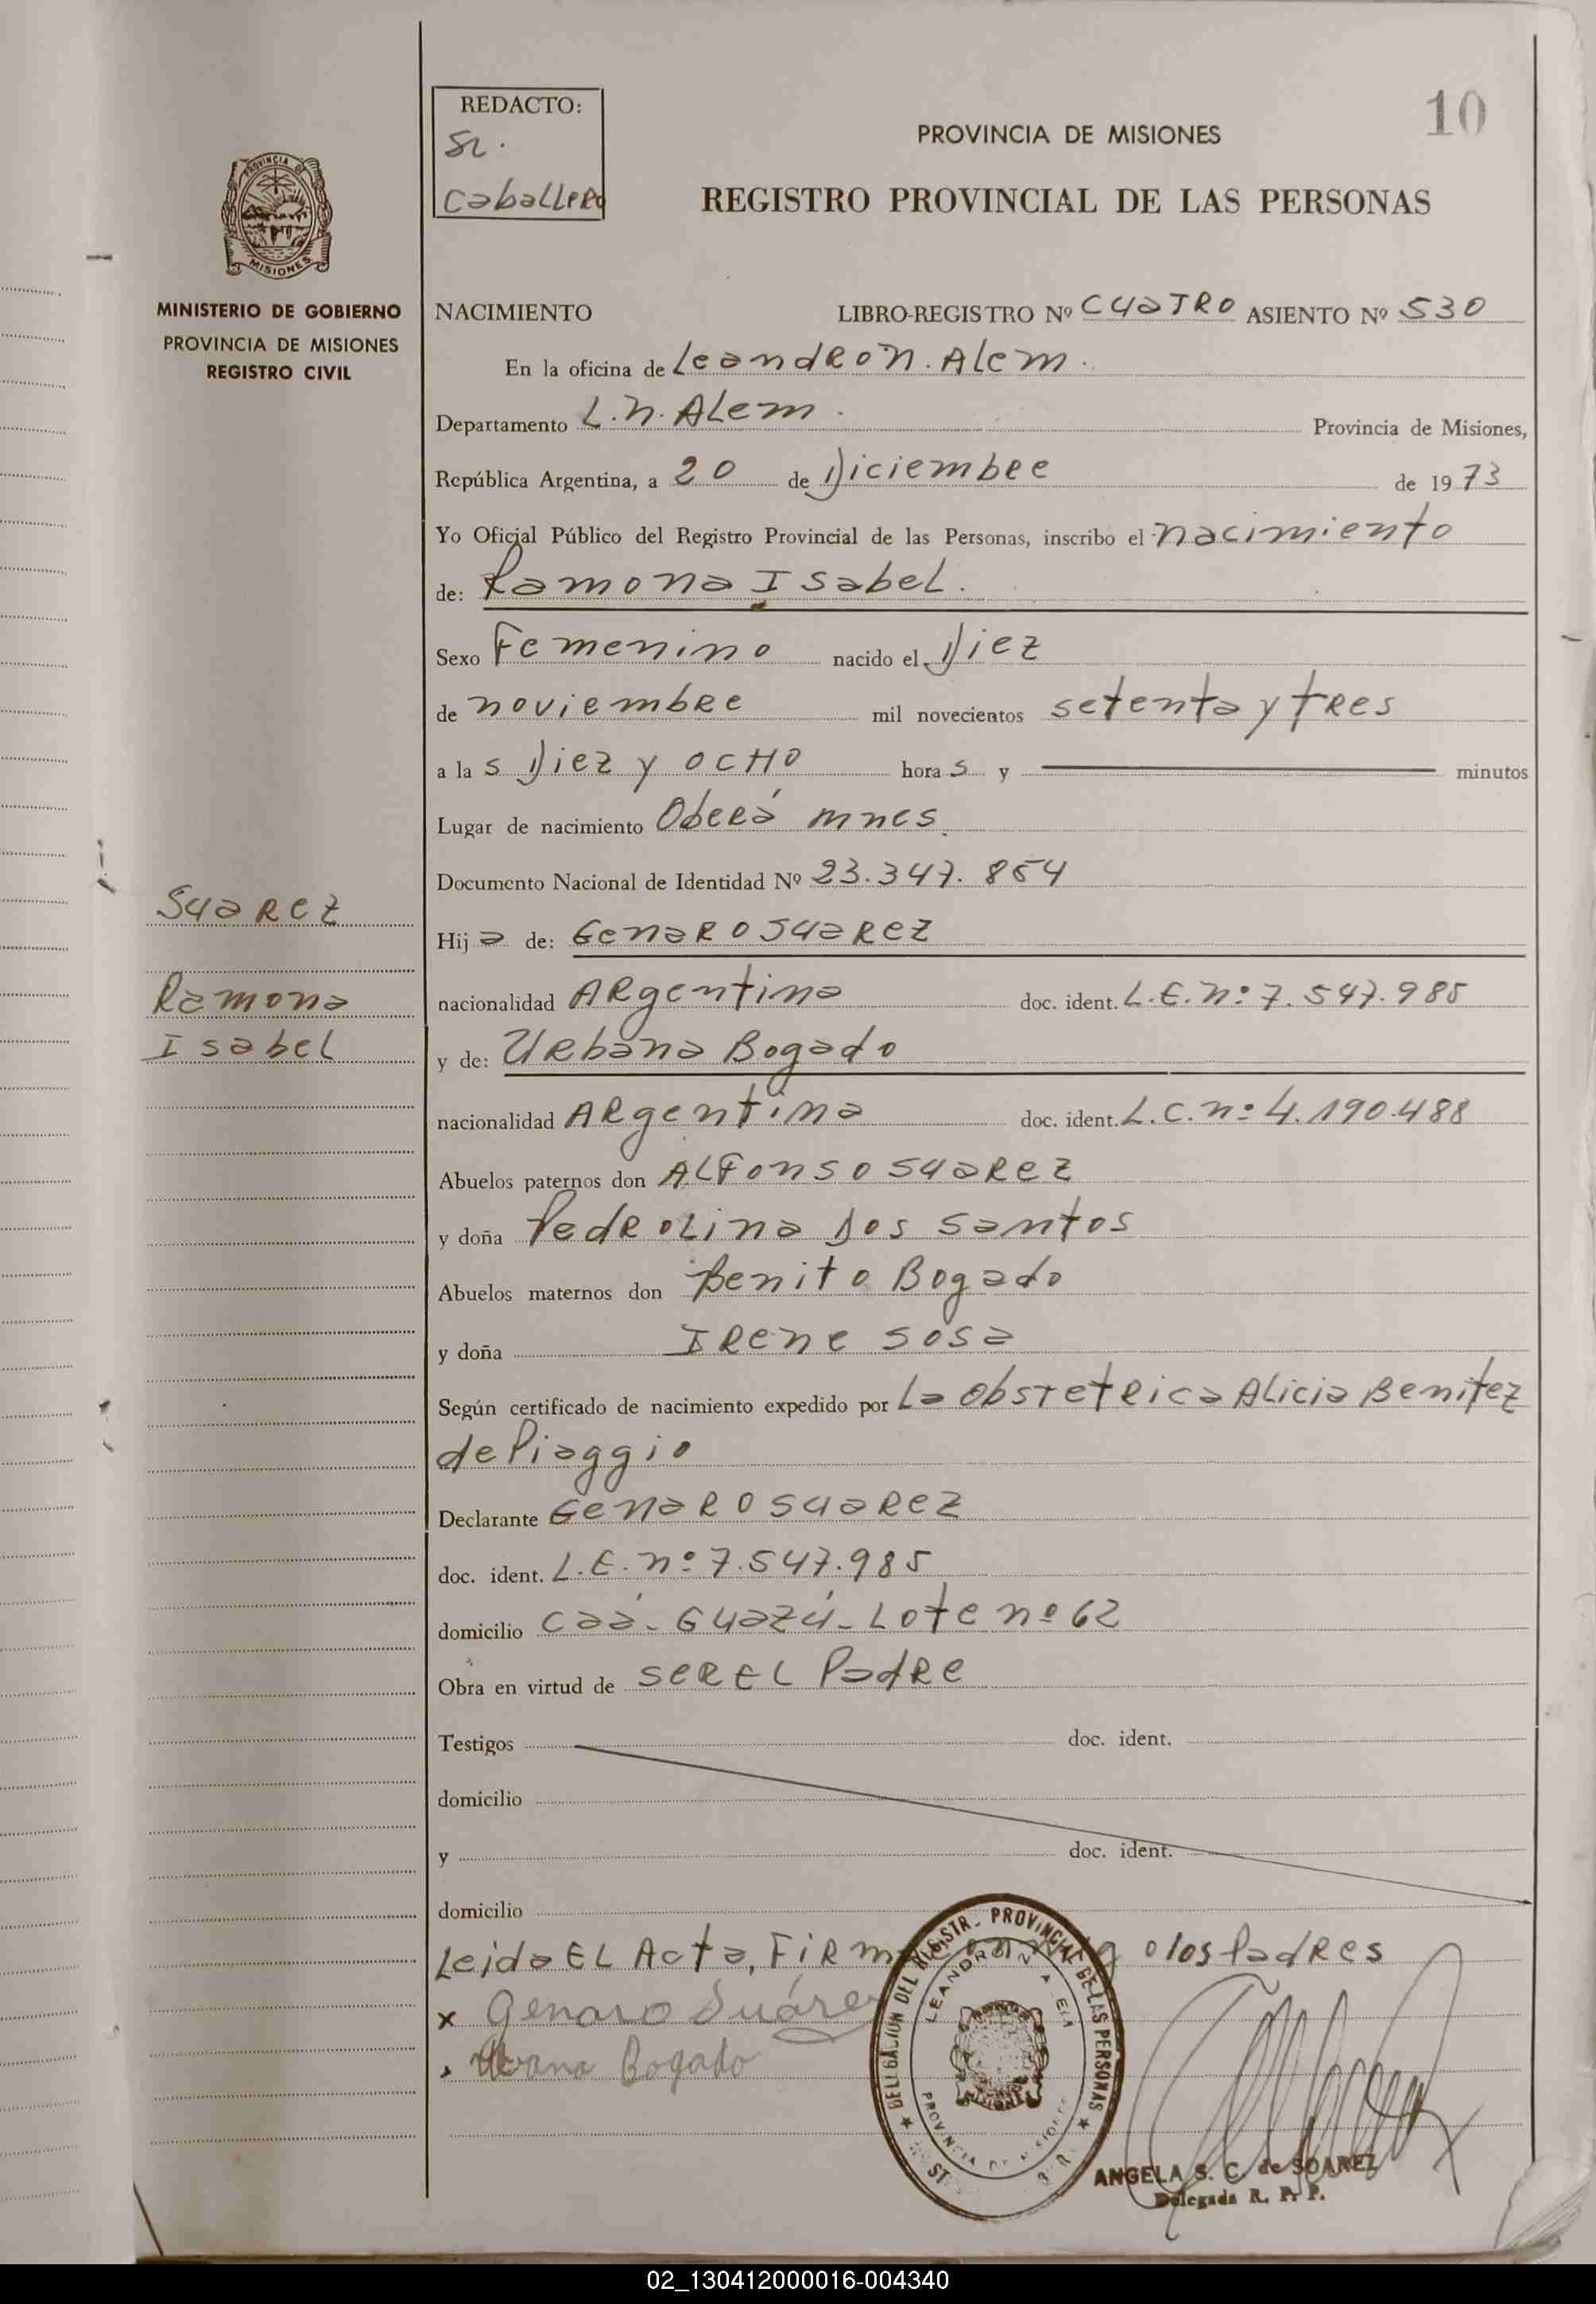 REDACTO:
Sr.
Caballero
10
PROVINCIA DE MISIONES
REGISTRO PROVINCIAL DE LAS PERSONAS
PROVINCIA DE
MISIONES
MINISTERIO DE GOBIERNO
PROVINCIA DE MISIONES
REGISTRO CIVIL
NACIMIENTO LIBRO-REGISTRO Nº CUATRO ASIENTO Nº 530
En la oficina de Leandro N. Alem.
Departamento L.N. Alem. Provincia de Misiones,
República Argentina, a 20 de Diciembre de 1973
Yo Oficial Público del Registro Provincial de las Personas, inscribo el nacimiento
de: Ramona Isabel.
Sexo Femenino nacido el Diez
de noviembre mil novecientos setenta y tres
a las Diez y ocho horas y minutos
Lugar de nacimiento Oberá mnes.
Documento Nacional de Identidad Nº 23.347.854
Suarez
Hija de: Genaro Suarez
Ramona
nacionalidad Argentina doc. ident. L.E. nº 7.547.985
Isabel
y de: Urbana Bogado
nacionalidad Argentina doc. ident. L.C. nº 4.190.488
Abuelos paternos don Alfonso Suarez
y doña Pedrolina Dos Santos
Abuelos maternos don Benito Bogado
y doña Irene Sosa
Según certificado de nacimiento expedido por La obstetrica Alicia Benitez
de Piaggio
Declarante Genaro Suarez
doc. ident. L.E. nº 7.547.985
domicilio Caá-Guazú-Lote nº 62
Obra en virtud de ser el Padre
Testigos doc. ident.
domicilio
y doc. ident.
domicilio
Leida el Acta, Firman los Padres
x Genaro Suárez
Bogado
DELEGACION DEL REGISTR. PROVINCIAL DE LAS PERSONAS
LEANDRO N. ALEM
PROVINCIA DE MISIONES
ANGELA S. C. de SOAREZ
Delegada R. P. P.
02_130412000016-004340